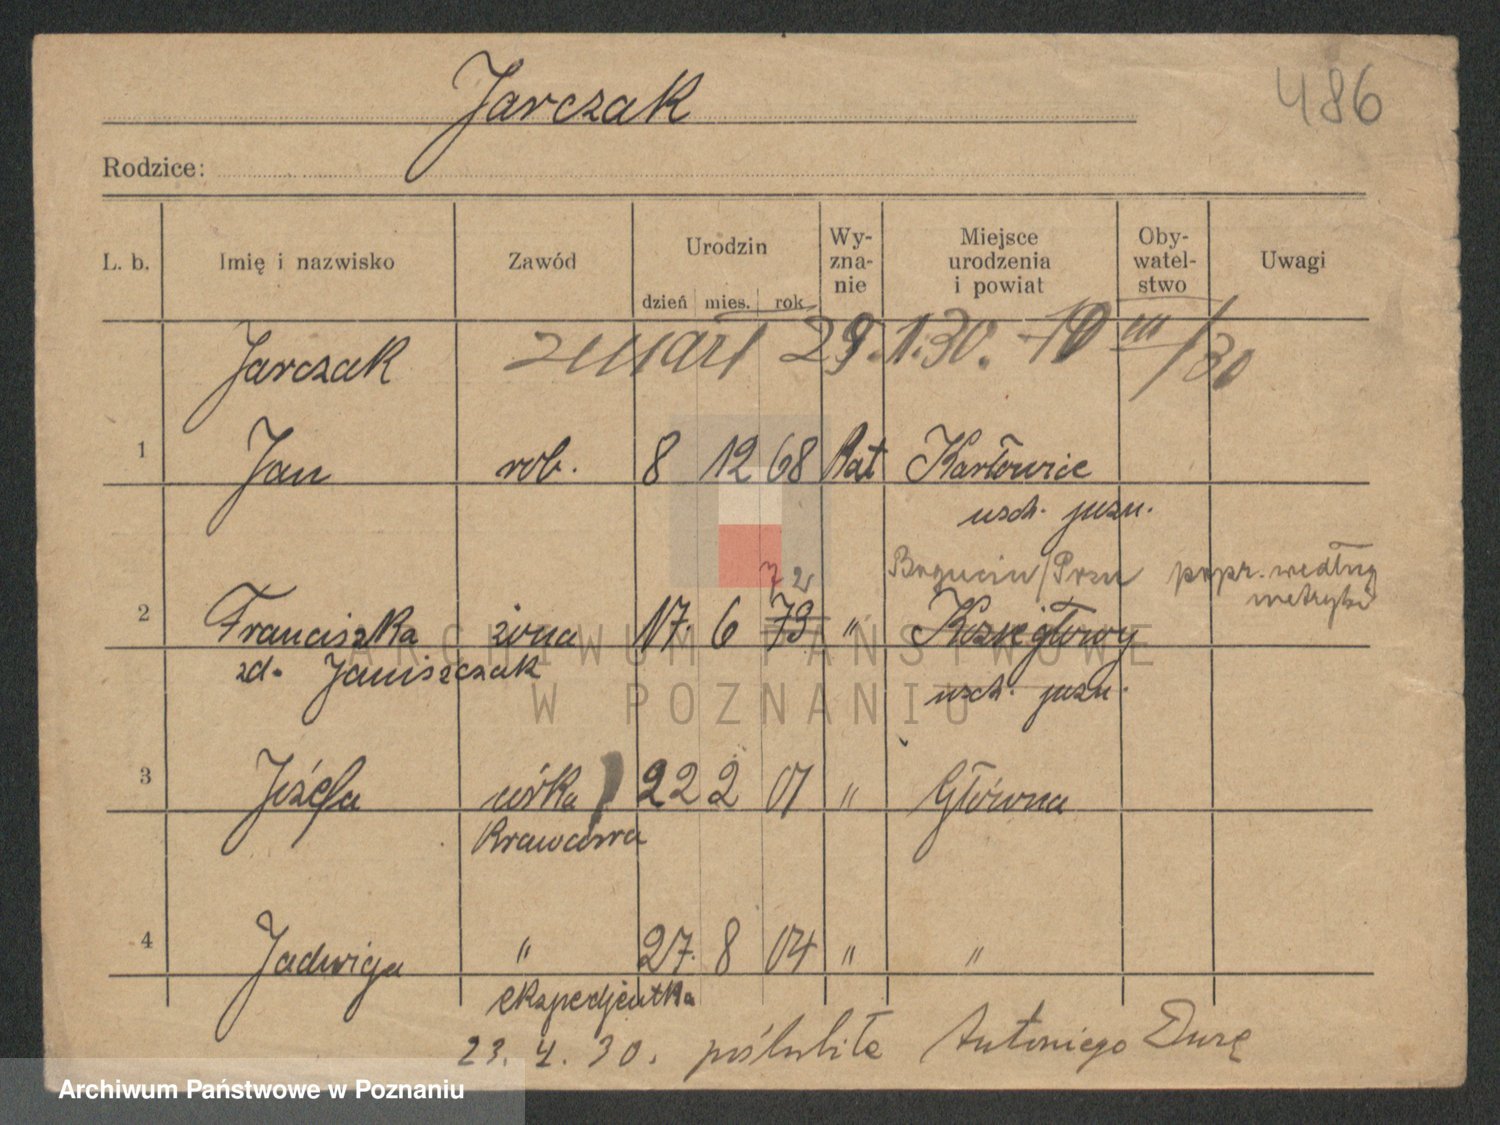 Jarczak
486
Rodzice:
L. b. Imię i nazwisko Zawód Urodzin Wy-zna-nie Miejsce urodzenia i powiat Oby-watel-stwo Uwagi
dzień mies. rok
Jarczak zmarł 29.1.30. III/30
1 Jan rob. 8 12 68 Kat Karłowice
wsch. pozn.
72 Bogucin/Pozn popr. według
metryki
2 Franciszka żona 17. 6 73 " Koziegłowy
zd. Janiszczak wsch. pozn.
3 Józefa córka 22 2 01 " Główna
Krawcowa
4 Jadwiga " 27. 8 04 " "
ekspedjentka
23. 4. 30. poślubiła Antoniego Durę
ARCHIWUM PAŃSTWOWE
W POZNANIU
Archiwum Państwowe w Poznaniu